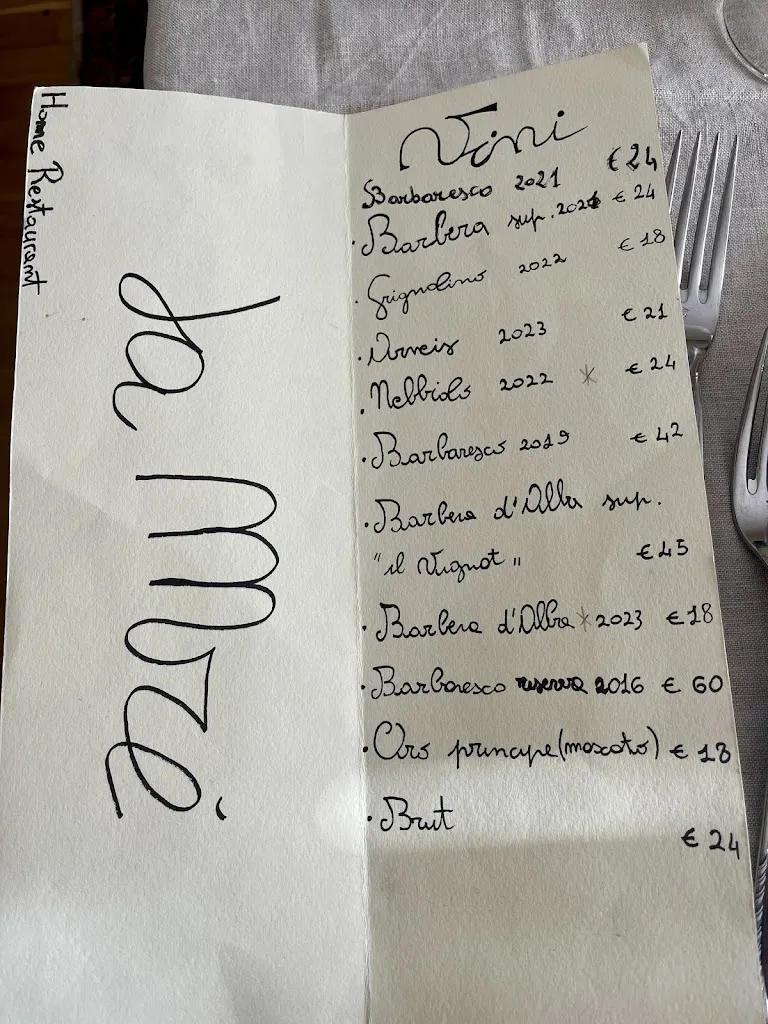 Home Restaurant
La Mirè
Vini
Barbaresco 2021 € 24
• Barbera sup. 2021 € 24
• Grignolino 2022 € 18
• Arneis 2023 € 21
• Nebbiolo 2022 * € 24
• Barbaresco 2019 € 42
• Barbera d'Alba sup.
"il Vignot" € 45
• Barbera d'Alba * 2023 € 18
• Barbaresco riserva 2016 € 60
• Oro principe (moscato) € 18
• Brut
€ 24